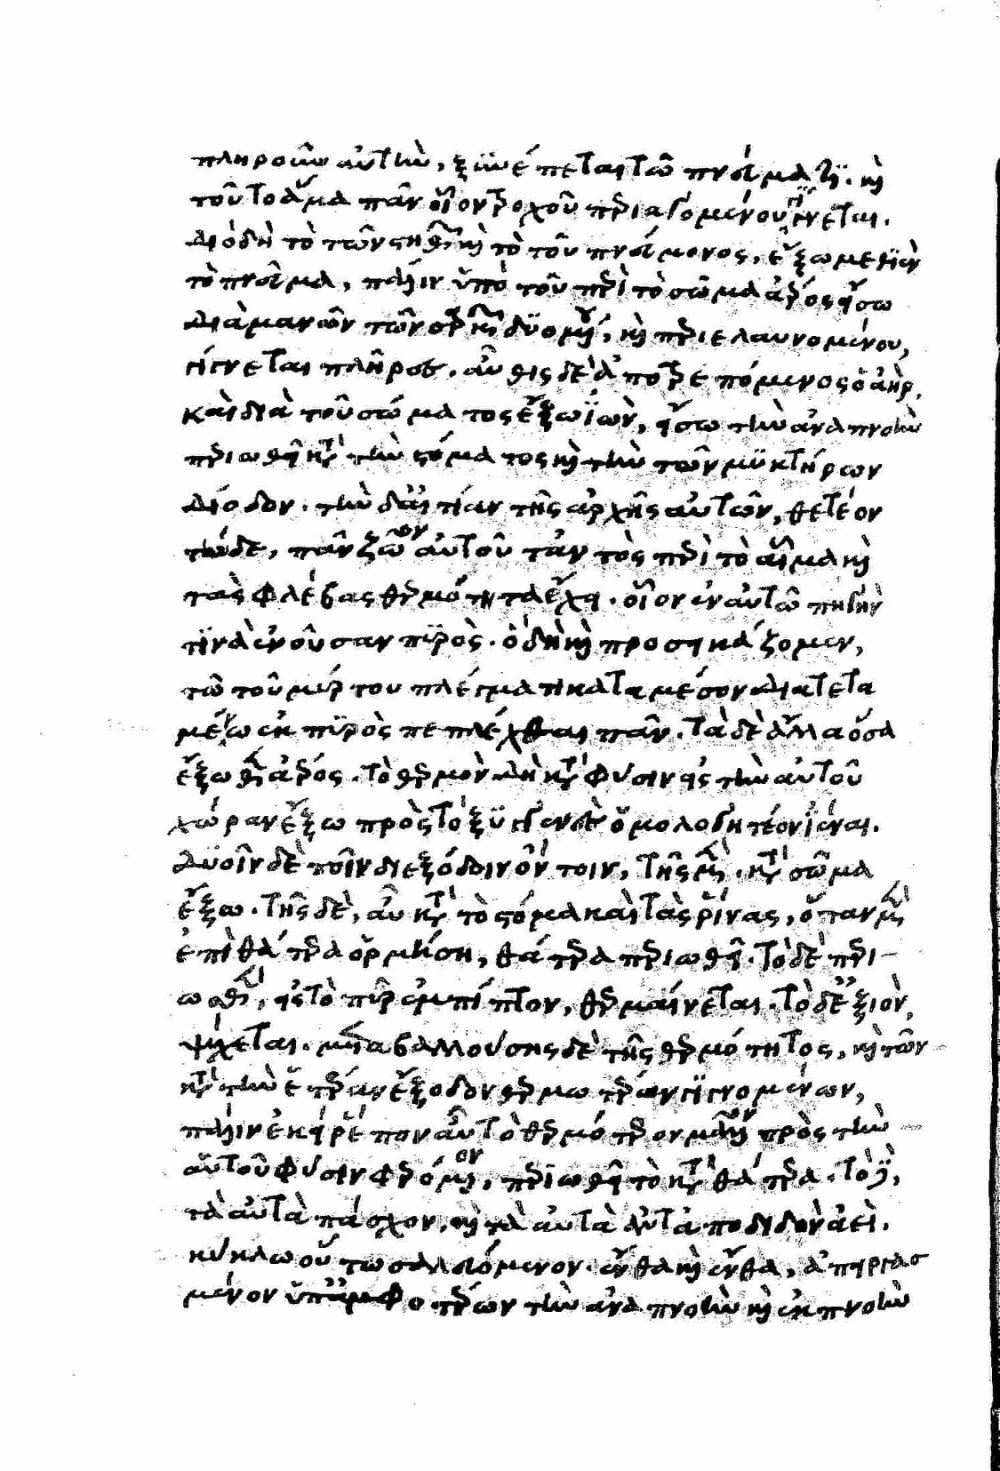 πληροῦν αὐτὴν, ξυνέπεται τῶ πνεύματι. καὶ
τοῦτο ἅμα πᾶν οἷον τροχοῦ περιαγομένου γίγνεται.
διὸ δὴ τὸ τῶν στηθῶν καὶ τὸ τοῦ πνεύμονος, ἔξω μεθιὲν
τὸ πνεῦμα, πάλιν ὑπὸ τοῦ περὶ τὸ σῶμα ἀέρος εἴσω
διὰ μανῶν τῶν σαρκῶν δυομένου, καὶ περιελαυνομένου,
γίγνεται πλῆρες. αὖθις δὲ ἀποτρεπόμενος ὁ ἀὴρ,
καὶ διὰ τοῦ σώματος ἔξω ϊὼν, εἴσω τὴν ἀναπνοὴν
περιωθεῖ κατὰ τὴν τοῦ στόματος καὶ τὴν τῶν μυκτήρων
δίοδον. τὴν δ' αἰτίαν τῆς ἀρχῆς αὐτῶν, θετέον
τήνδε, πᾶν ζῶον αὑτοῦ τἀντὸς περὶ τὸ αἷμα καὶ
τὰς φλέβας θερμότητα ἔχει. οἷον ἐν αὑτῶ πηγήν
τινὰ ἐνοῦσαν πυρὸς. ὃ δὴ καὶ προσηκάζομεν,
τῶ τοῦ κύρτου πλέγματι κατὰ μέσον διατετα
μένω ἐκ πυρὸς πεπλέχθαι πᾶν. τὰ δὲ ἄλλα ὅσα
ἔξωθεν ἀέρος. τὸ θερμὸν δὴ κατὰ φύσιν εἰς τὴν αὑτοῦ
χώραν ἔξω πρὸς τὸ ξυγγενὲς ὁμολογητέον ϊέναι.
δυοῖν δὲ τοῖν διεξόδοιν οὔσαιν, τῆς μὲν κατὰ σῶμα
ἔξω. τῆς δὲ, αὖ κατὰ τὸ στόμα καὶ τὰς ῥῖνας, ὅταν μὲν
ἐπὶ θάτερα ὁρμήση, θάτερα περιωθεῖ. τὸ δὲ περι-
ωσθὲν, εἰς τὸ πῦρ ἐμπίπτον, θερμαίνεται. τὸ δ' ἐξιὸν,
ψύχεται. μεταβαλλούσης δὲ τῆς θερμότητος, καὶ τῶν
κατὰ τὴν ἑτέραν ἔξοδον θερμωτέρων γιγνομένων,
πάλιν ἐκείνη ῥέπον αὖ τὸ θερμότερον μᾶλλον πρὸς τὴν
αὑτοῦ φύσιν φερόμενον, περιωθεῖ τὸ κατὰ θάτερα. τὸ δὲ,
τὰ αὐτὰ πάσχον, καὶ τὰ αὐτὰ ἀνταποδιδὸν ἀεὶ.
κύκλον οὕτω σαλευόμενον. ἔνθα καὶ ἔνθα, ἀπειργασ
μένον ὑπ' ἀμφοτέρων τὴν ἀναπνοὴν καὶ ἐκπνοὴν